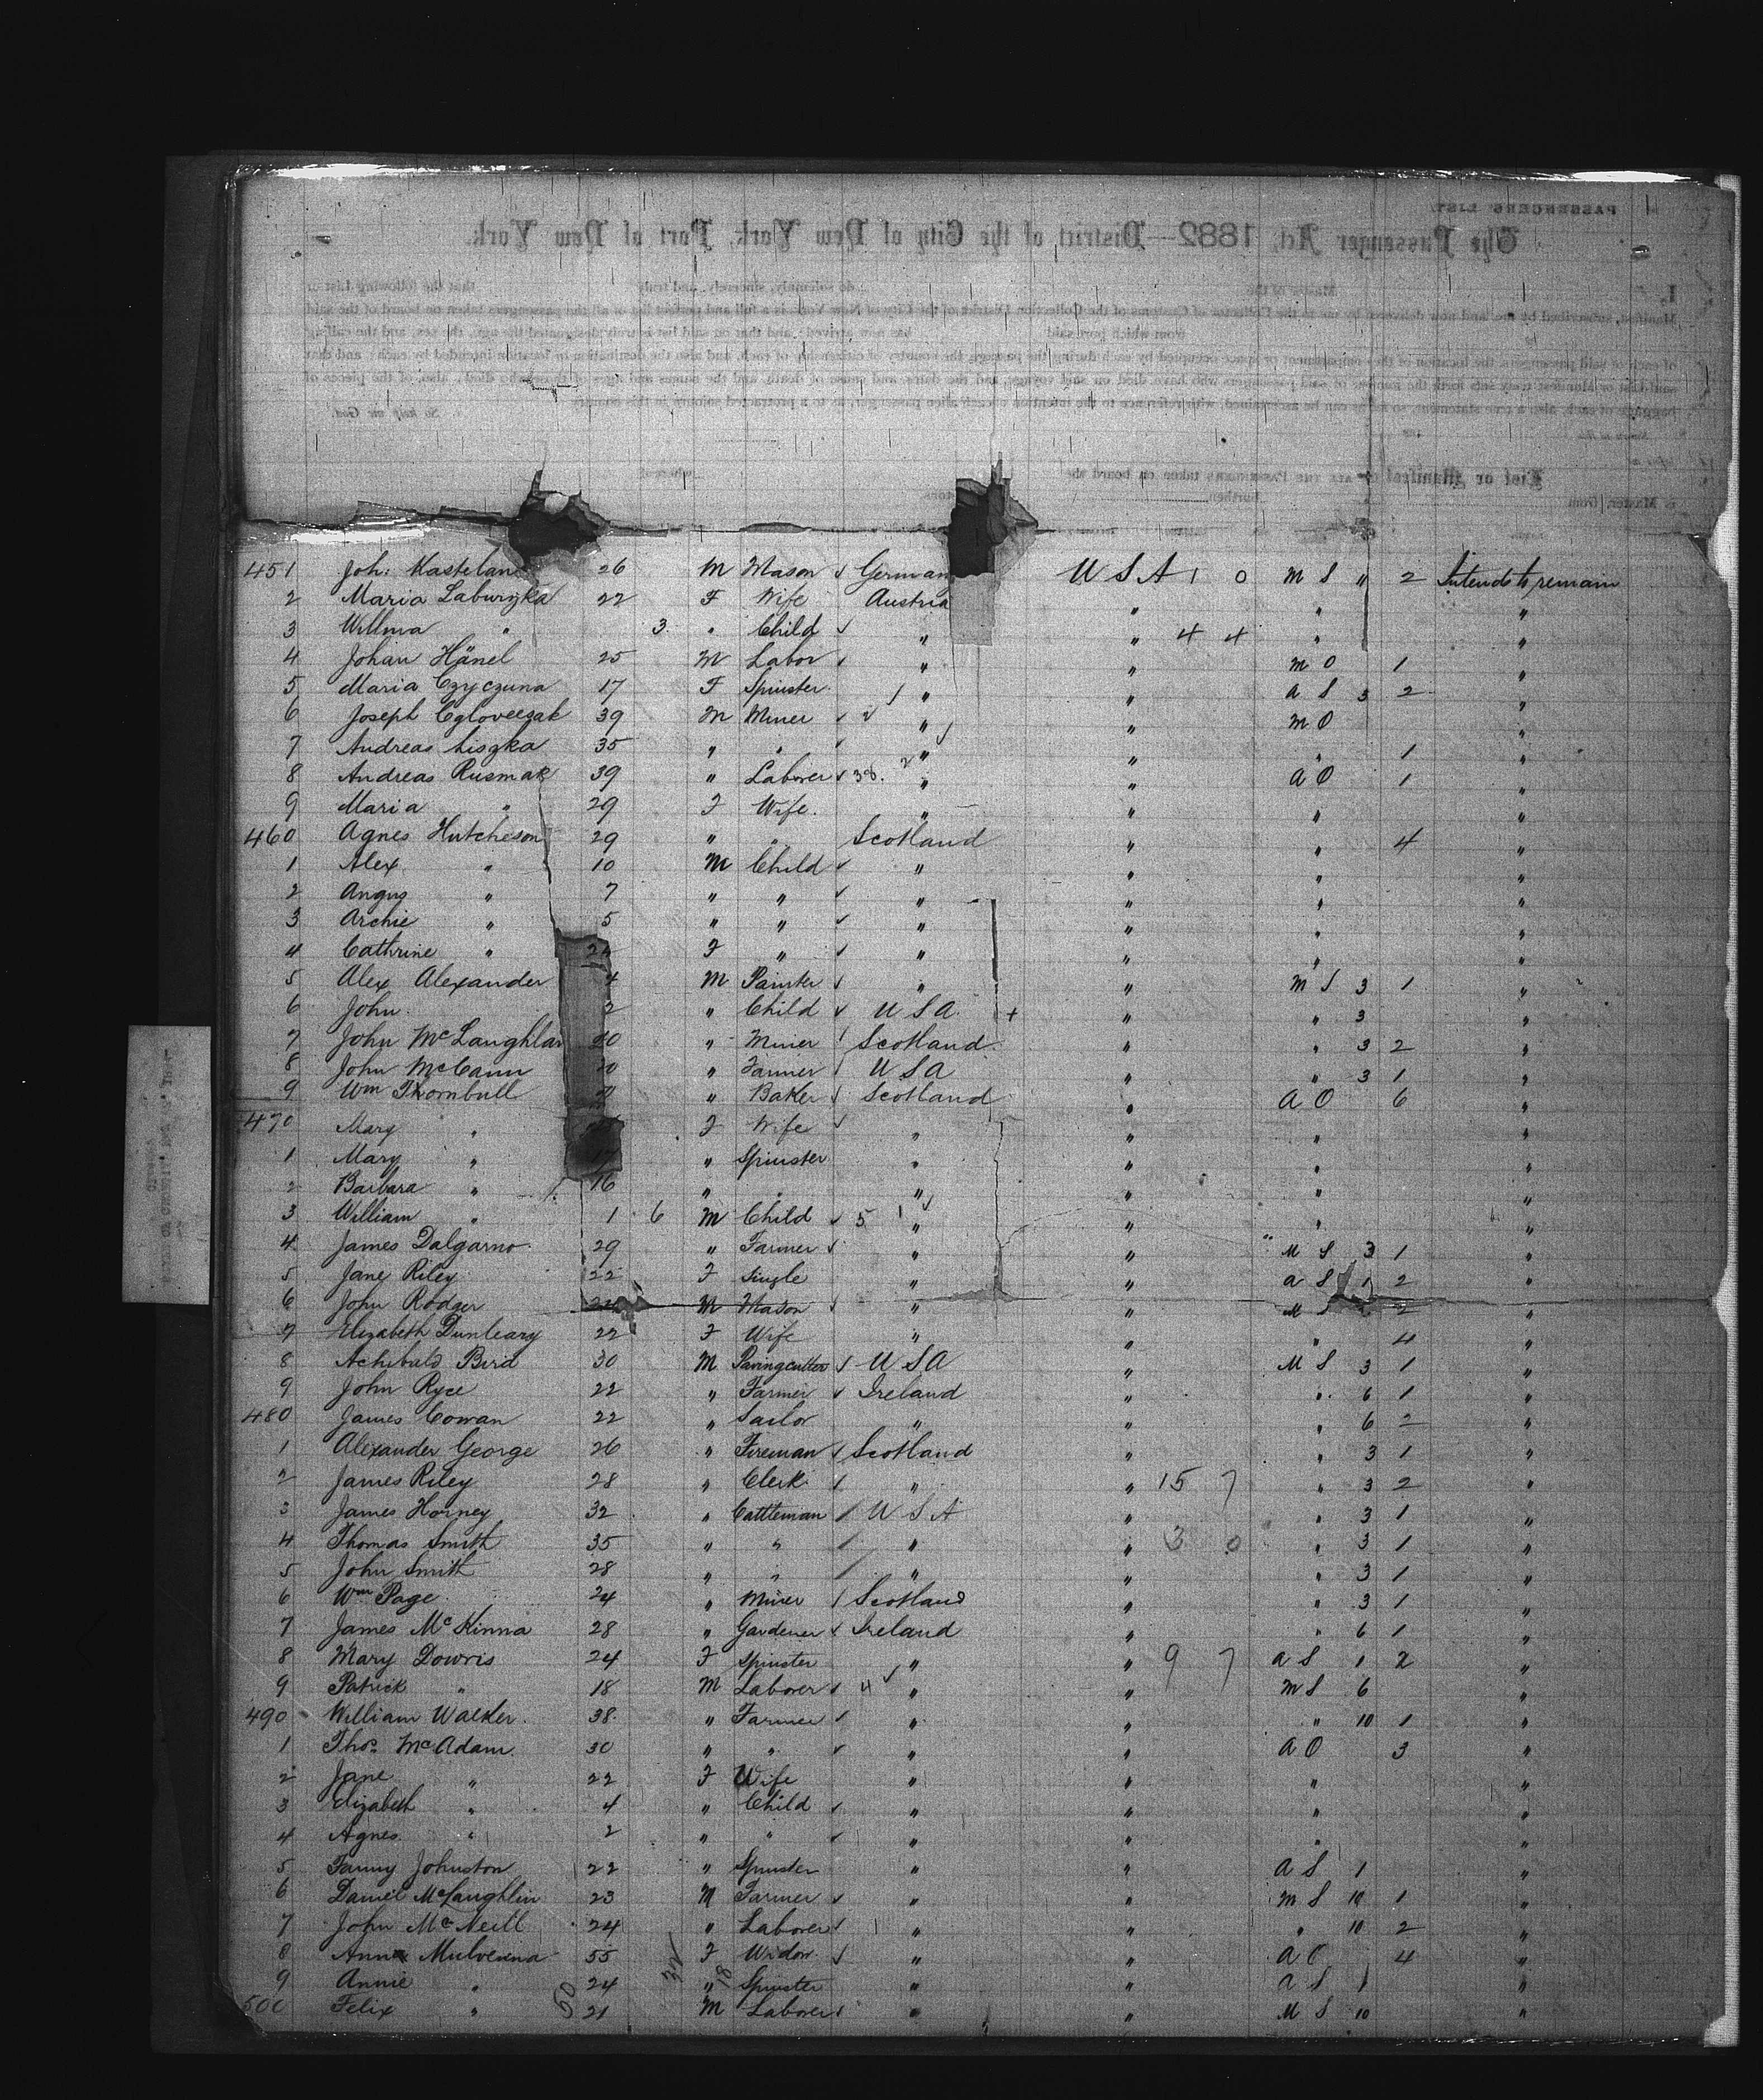 451 Joh: Kastelan 26 M Mason √ German U S A 1 0 M S " 2 Intends to remain
2 Maria Laburzka 22 F Wife Austria " " "
3 Willma " 3 " Child √ " " 4 4 " "
4 Johan Hänel 25 M Labor √ " " M O 1 "
5 Maria Czyczuna 17 F Spinster " " A S 3 2 "
6 Joseph 39 M Miner √ " " M O "
7 Andreas Liszka 35 " " √ " " " 1 "
8 Andreas Rusmak 39 " Laborer √ 38. 2 " " A O 1 "
9 Maria " 29 F Wife. " " " "
460 Agnes Hutcheson 29 " " Scotland " " 4 "
1 Alex " 10 M Child √ " " " "
2 Angus " 7 " " √ " " " "
3 Archie " 5 " " √ " " " "
4 Cathrine " F " √ " " " "
5 Alex Alexander 4 M Painter √ " " M S 3 1 "
6 John 2 " Child √ U S A + " " 3 "
7 John McLaughlan 20 " Miner Scotland " " 3 2 "
8 John McCann " Farmer U S A " " 3 1 "
9 Wm Thornbull " Baker √ Scotland " A O 6 "
470 Mary " F Wife √ " " " "
1 Mary " 17 " Spinster " " " "
2 Barbara " 16 " " " " " "
3 William " 1 6 M Child √ 5 1 " " " "
4 James Dalgarno 29 " Farmer √ " " M S 3 1 "
5 Jane Riley 22 F Single " " A S 1 2 "
6 John Rodger M Mason √ " " M S 2 "
7 Elizabeth Dunleary 22 F Wife " " " 4 "
8 Achibald Bird 30 M Pavingcutter √ U S A " M S 3 1 "
9 John Ryce 22 " Farmer √ Ireland " " 6 1 "
480 James Cowan 22 " Sailor " " " 6 2 "
1 Alexander George 26 " Fireman √ Scotland " " 3 1 "
2 James Riley 28 " Clerk / " " 15 7 " 3 2 "
3 James Horney 32 " Cattleman / U S A " " 3 1 "
4 Thomas Smith 35 " " / " " 3 0 " 3 1 "
5 John Smith 28 " " / " " " 3 1 "
6 Wm Page 24 " Miner / Scotland " " 3 1 "
7 James McKinna 28 " Gardener √ Ireland " " 6 1 "
8 Mary Dowris 24 F Spinster " " 9 7 A S 1 2 "
9 Patrick " 18 M Laborer √ 4 " " M S 6 "
490 William Walker 38 " Farmer √ " " " 10 1 "
1 Thos McAdam 30 " " √ " " A O 3 "
2 Jane " 22 F Wife " " " "
3 Elizabeth " 4 " Child √ " " " "
4 Agnes " 2 " " √ " " " "
5 Fanny Johnston 22 " Spinster " " A S 1 "
6 Daniel McLaughlin 23 M Farmer √ " " M S 10 1 "
7 John McNeill 24 " Laborer √ " " " 10 2 "
8 Anna Mulvenna 55 F Widow √ " " A O 4 "
9 Annie " 24 " Spinster " " A S 1 "
500 Felix " 21 M Laborer √ " " M S 10 "